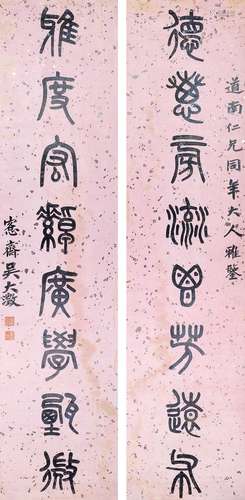 道南仁兄同年大人雅鑒
德惠旁流芳遠布
雅度宏綽廣學甄微
愙齋吳大澂